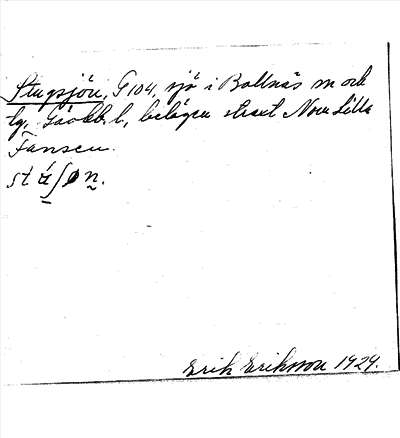 Stugsjön, G 104, sjö i Bollnäs sn och
tg, Gävlebl. l., belägen strax Norr Lilla
Fansen.
Erik Eriksson 1929.